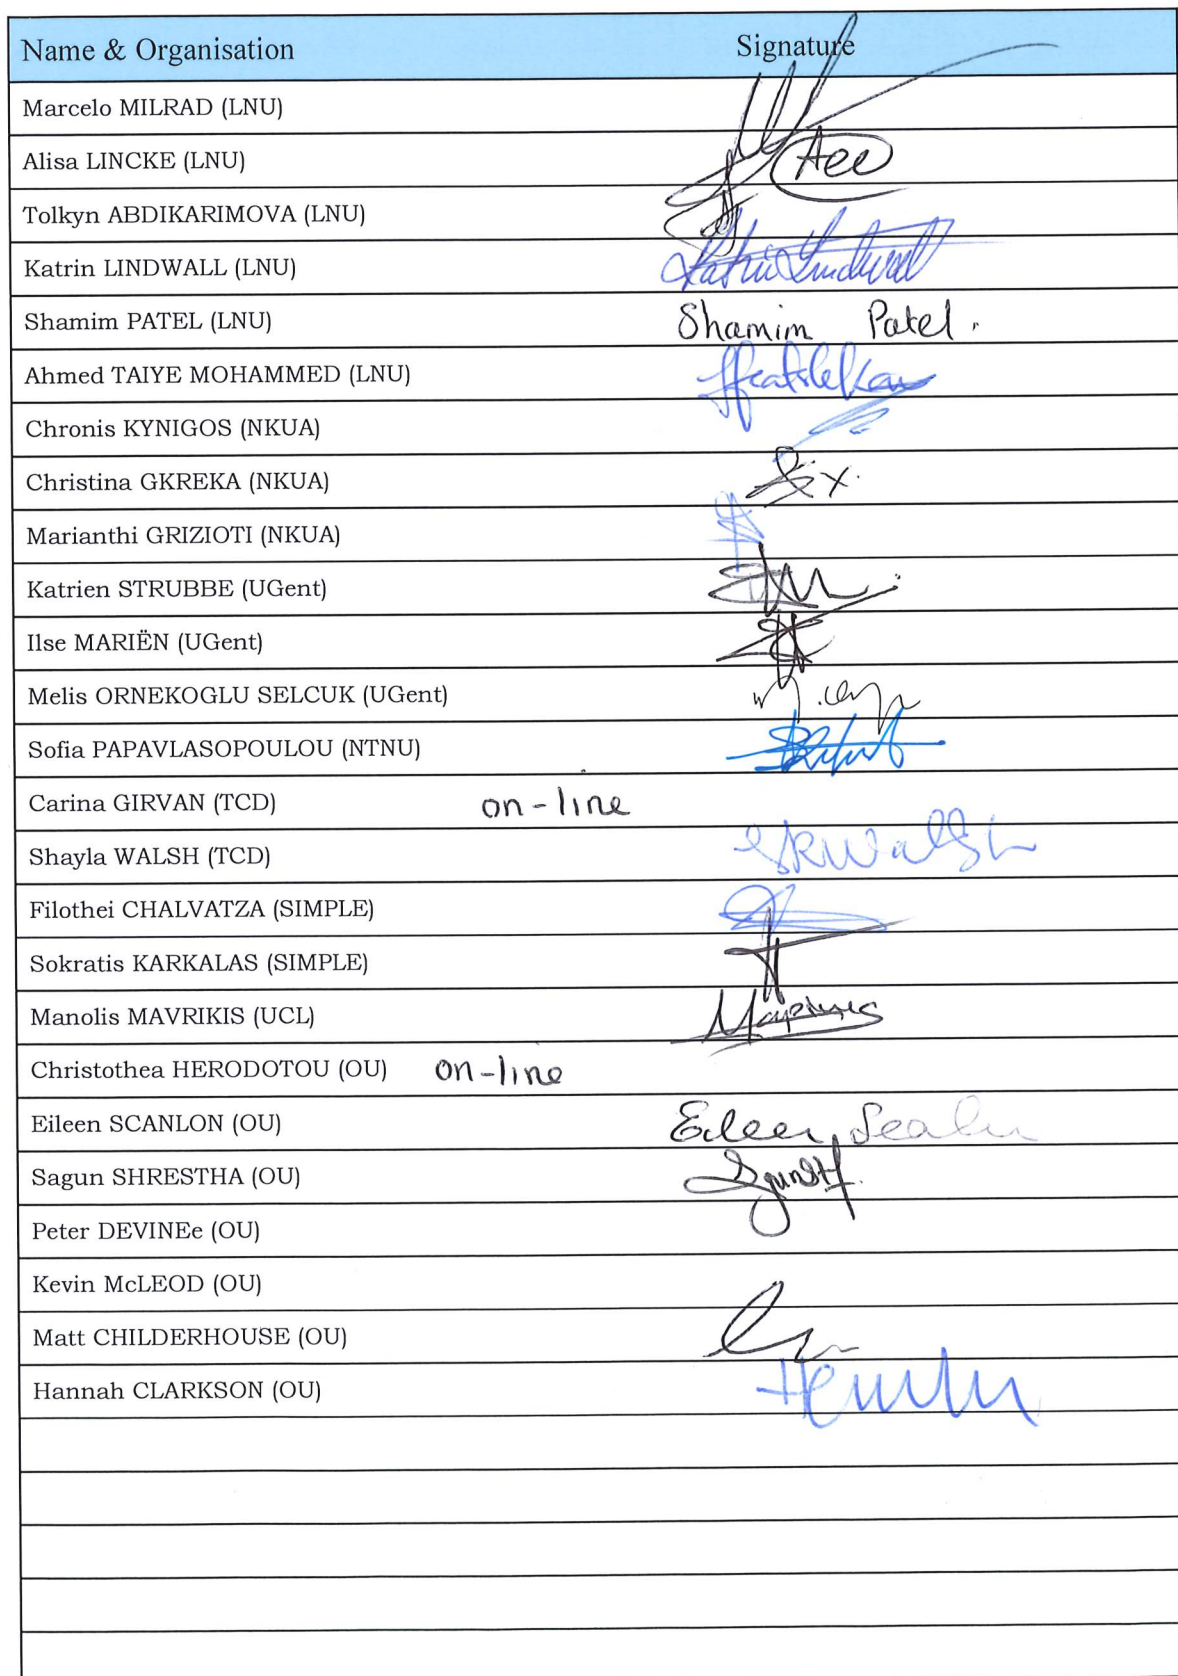 Name & Organisation Signature
Marcelo MILRAD (LNU)
Alisa LINCKE (LNU)
Tolkyn ABDIKARIMOVA (LNU)
Katrin LINDWALL (LNU) Katrin Lindwall
Shamim PATEL (LNU) Shamim Patel.
Ahmed TAIYE MOHAMMED (LNU)
Chronis KYNIGOS (NKUA)
Christina GKREKA (NKUA)
Marianthi GRIZIOTI (NKUA)
Katrien STRUBBE (UGent)
Ilse MARIËN (UGent)
Melis ORNEKOGLU SELCUK (UGent)
Sofia PAPAVLASOPOULOU (NTNU)
Carina GIRVAN (TCD) on-line
Shayla WALSH (TCD) SKWalsh
Filothei CHALVATZA (SIMPLE)
Sokratis KARKALAS (SIMPLE)
Manolis MAVRIKIS (UCL)
Christothea HERODOTOU (OU) on-line
Eileen SCANLON (OU) Eileen Scanlon
Sagun SHRESTHA (OU)
Peter DEVINEe (OU)
Kevin McLEOD (OU)
Matt CHILDERHOUSE (OU)
Hannah CLARKSON (OU)